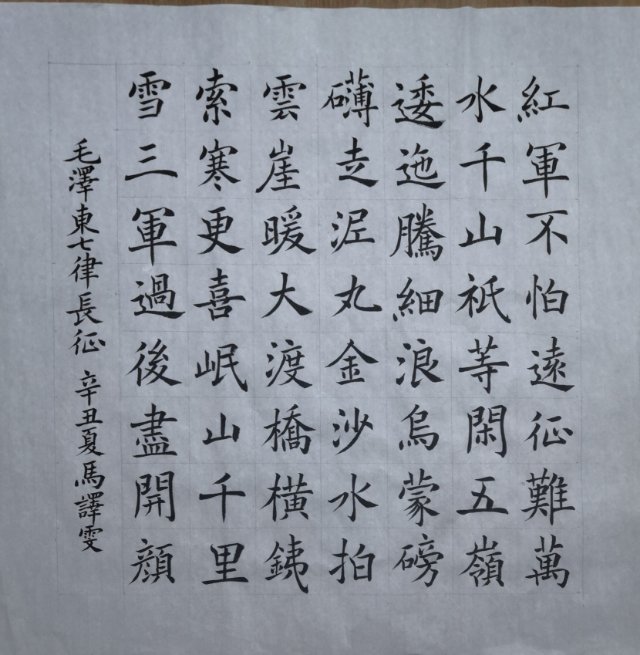 紅軍不怕遠征難萬
水千山祇等閑五嶺
逶迤騰細浪烏蒙磅
礴走泥丸金沙水拍
雲崖暖大渡橋橫銕
索寒更喜岷山千里
雪三軍過後盡開顔
毛澤東七律長征 辛丑夏馬譯雯